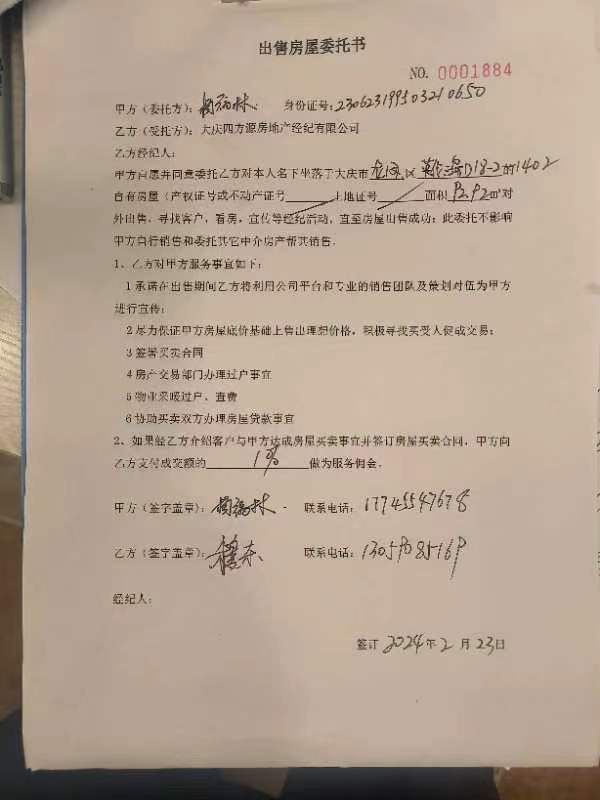 出售房屋委托书
NO. 0001884
甲方（委托方）： 身份证号：230623199503210650
乙方（受托方）：大庆四方源房地产经纪有限公司
乙方经纪人：
甲方自愿并同意委托乙方对本人名下坐落于大庆市 区 D18-2 的1402
自有房屋（产权证号或不动产证号 土地证号 面积 ㎡对
外出售、寻找客户，看房，宣传等经纪活动，直至房屋出售成功；此委托不影响
甲方自行销售和委托其它中介房产帮其销售．
1、乙方对甲方服务事宜如下：
1 承诺在出售期间乙方将利用公司平台和专业的销售团队及策划对值为甲方
进行宣传；
2 尽力保证甲方房屋底价基础上售出理想价格，积极寻找买受人促成交易；
3 签署买卖合同
4 房产交易部门办理过户事宜
5 物业采暖过户、查费
6 协助买卖双方办理房屋贷款事宜
2、如果经乙方介绍客户与甲方达成房屋买卖事宜并签订房屋买卖合同，甲方向
乙方支付成交额的 1% 做为服务佣金．
甲方（签字盖章）： 联系电话：17745547678
乙方（签字盖章）： 联系电话：
经纪人：
签订 2024年2月23日